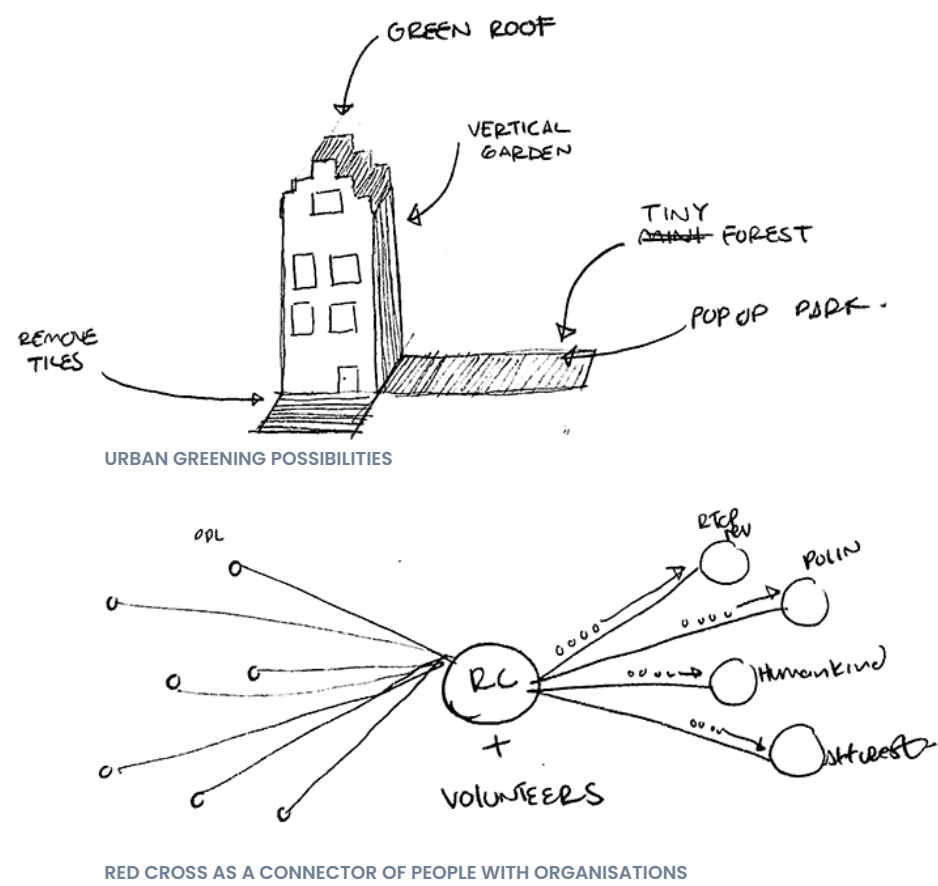 GREEN ROOF
VERTICAL
GARDEN
TINY
FOREST
POP UP PARK.
REMOVE
TILES
URBAN GREENING POSSIBILITIES
PPL
POLIN
Humankind
RC
+
VOLUNTEERS
RED CROSS AS A CONNECTOR OF PEOPLE WITH ORGANISATIONS